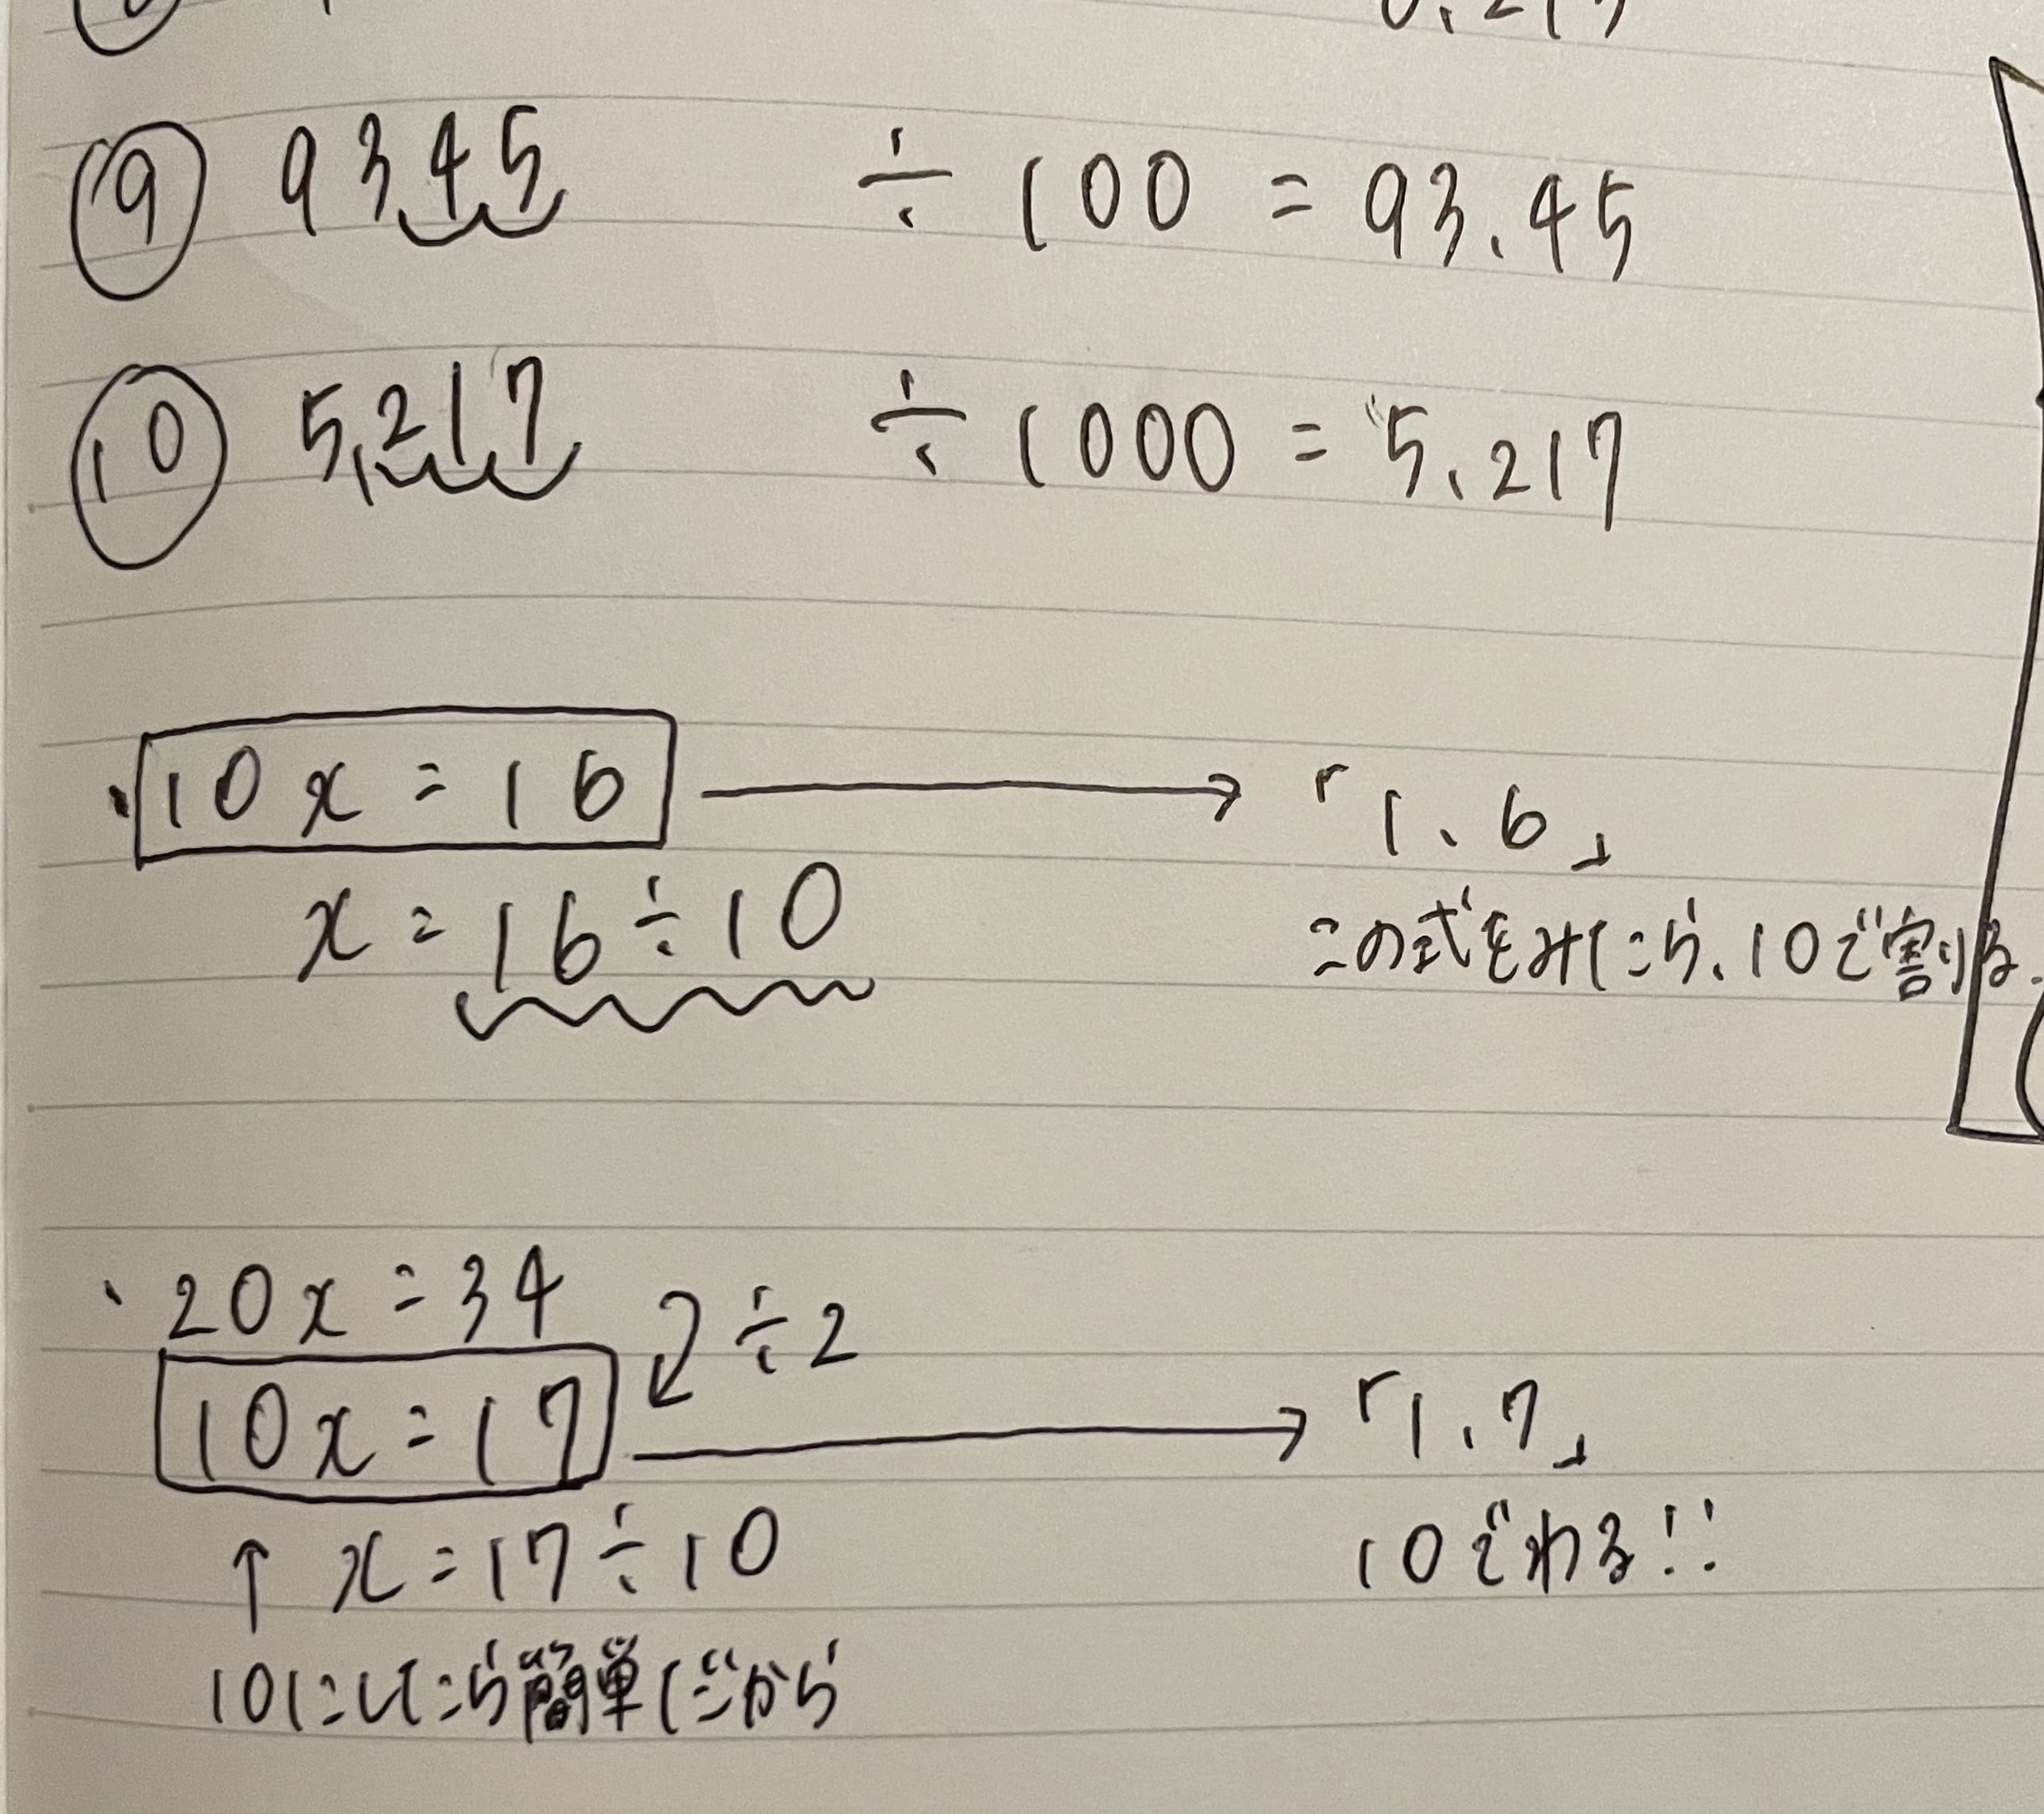 ⑨ 9345 ÷ 100 = 93.45
⑩ 5,217 ÷ 1000 = 5.217
・10x = 16 → 「1.6」
x = 16 ÷ 10
この式をみたら、10で割る.
・20x = 34
÷2
10x = 17 → 「1.7」
↑ x = 17 ÷ 10
10でわる!!
10にしたら簡単だから